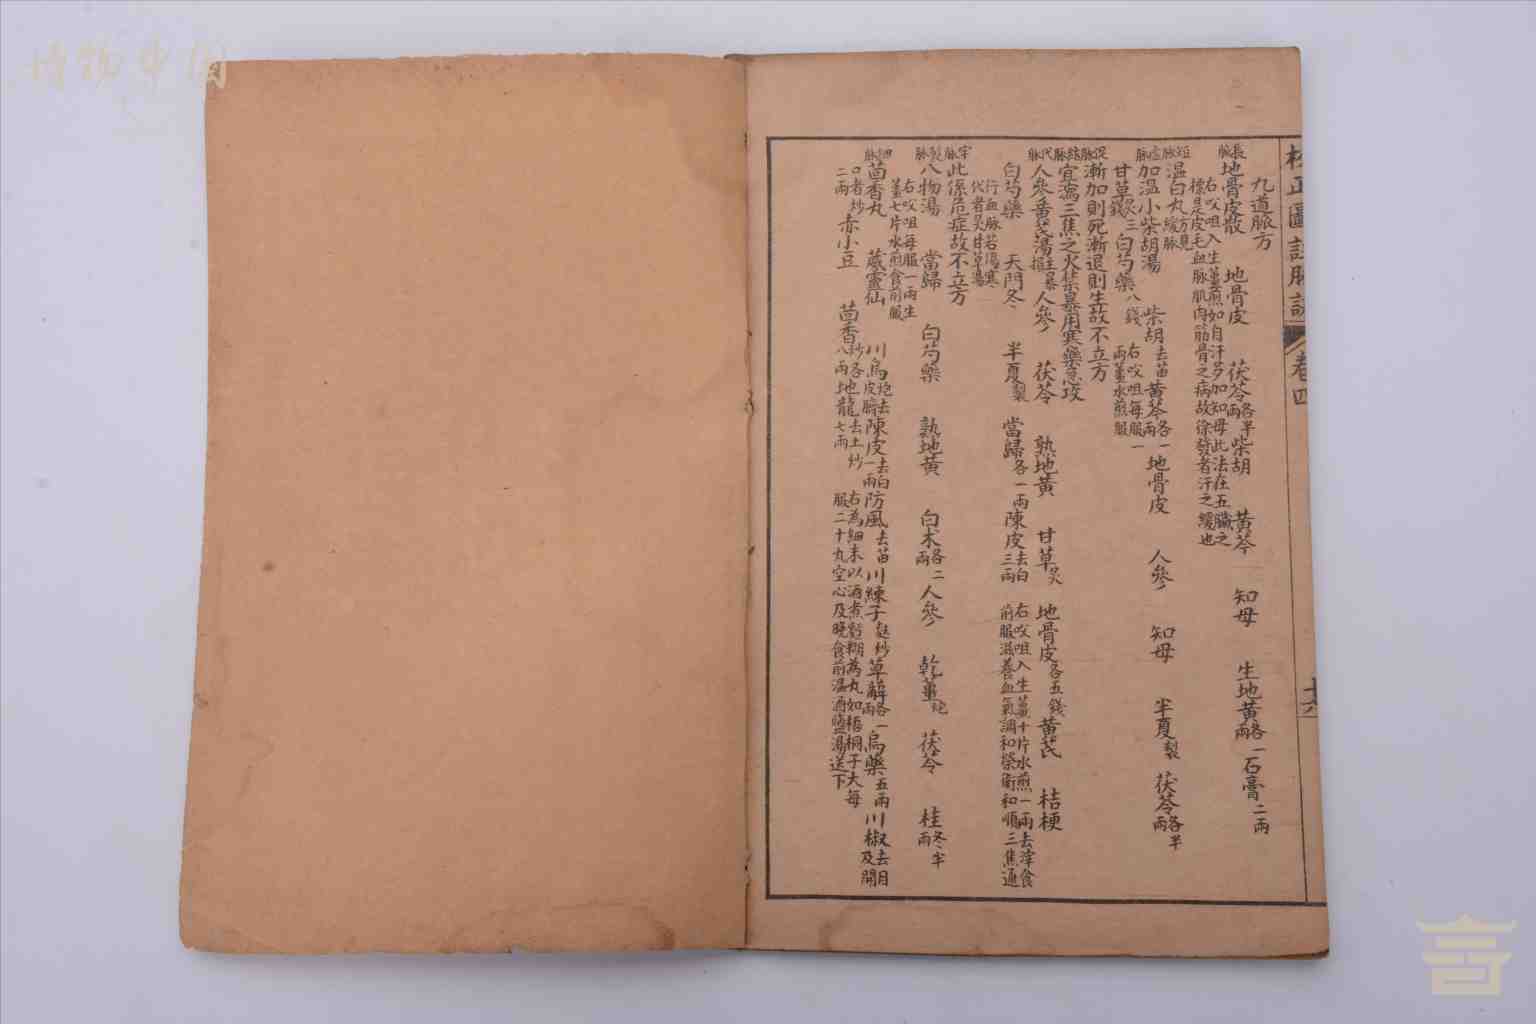 博物中国
校正圖註脉訣 卷四 十六
九道脈方
長脈 地骨皮散 地骨皮 茯苓各半兩 柴胡 黃芩 知母 生地黃各一兩 石膏二兩
右㕮咀入生薑煎如自汗多加知母此法在五臟之
標是皮毛血脉肌肉筋骨之病故徐發者汗之緩也
短脈 温白丸方見緩脈
虛脈 加温小柴胡湯 柴胡去苗 黃芩各一兩 地骨皮 人參 知母 半夏製 茯苓各半兩
甘草炙三錢 白芍藥八錢 右㕮咀每服一兩薑水煎服
促脈 漸加則死漸退則生故不立方
結脈 宜瀉三焦之火禁暴用寒藥急攻
代脈 人參黃芪湯 人參 茯苓 熟地黃 甘草炙 地骨皮各五錢 黃芪 桔梗
白芍藥 天門冬 半夏製 當歸各一兩 陳皮去白三兩 右㕮咀入生薑十片水煎一兩去滓食
前服滋養血氣調和榮衛和順三焦通
行血脉若瀉寒
代者炙甘草湯
牢脈 此係危症故不立方
八物湯 當歸 白芍藥 熟地黃 白朮各二兩 人參 乾薑炮 茯苓 桂各半兩
右㕮咀每服一兩生
薑七片水煎食前服
細脈 茴香丸 葳靈仙 川烏炮去皮臍 陳皮去白一兩 防風去苗 川練子麩炒 萆薢各一兩 烏藥五兩 川椒去目及開
口者炒二兩 赤小豆 茴香炒各八兩 地龍去土炒七兩 右為細末以酒煮麪糊為丸如梧桐子大每
服二十丸空心及晚食前温酒鹽湯送下